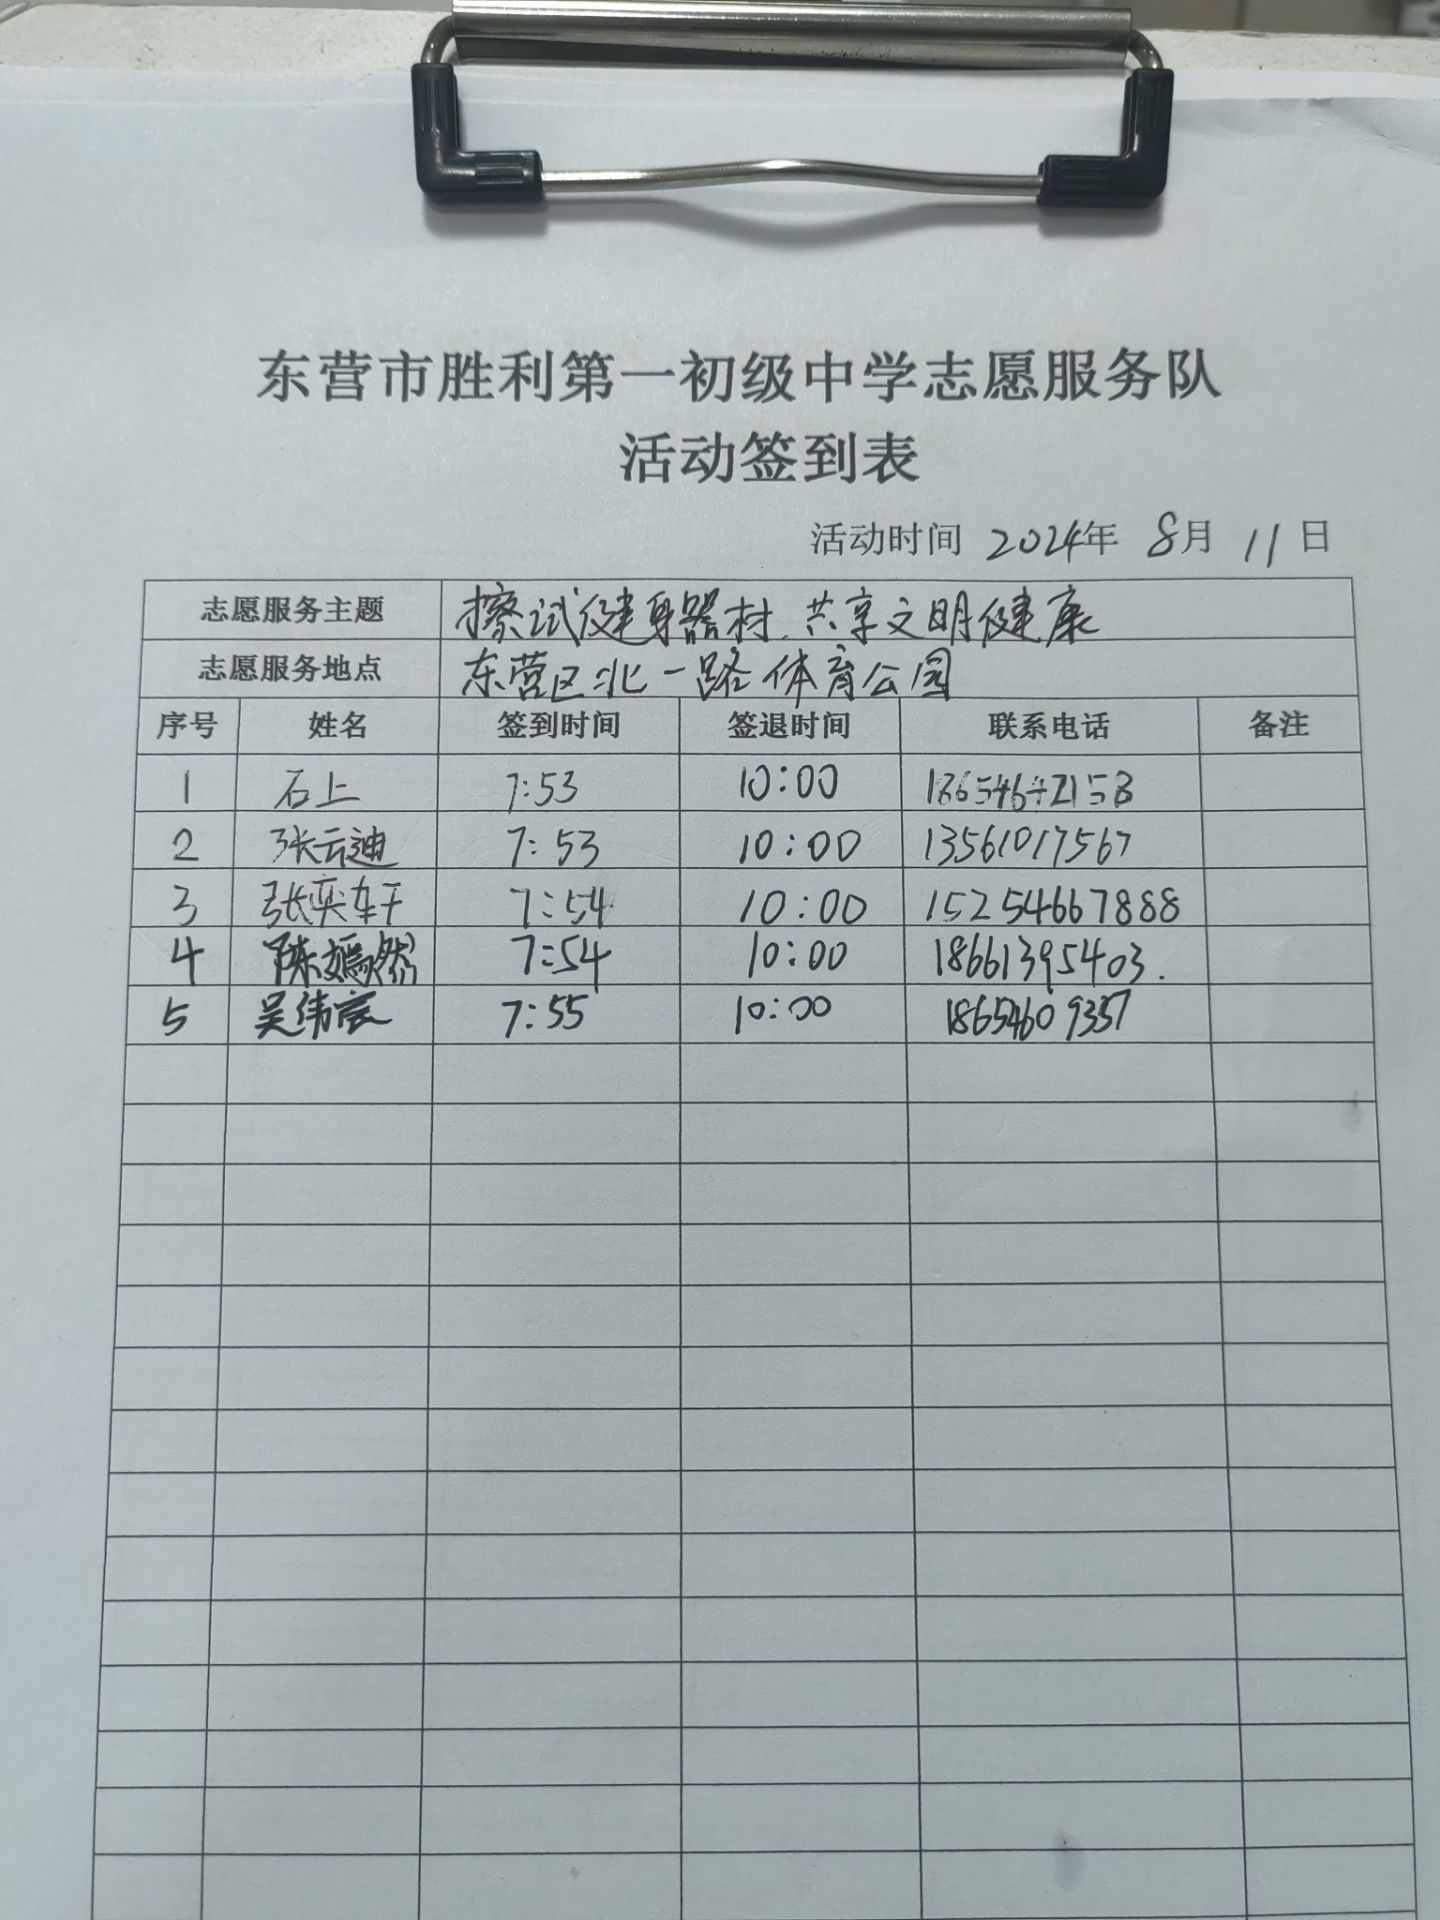 东营市胜利第一初级中学志愿服务队
活动签到表
活动时间 2024年 8月 11日
志愿服务主题 擦试健身器材、共享文明健康
志愿服务地点 东营区北一路体育公园
序号 姓名 签到时间 签退时间 联系电话 备注
1 石上 7:53 10:00
2 张云迪 7:53 10:00 13561017567
3 张奕轩 7:54 10:00 15254667888
4 陈嫣然 7:54 10:00 18661395403.
5 吴纬宸 7:55 10:00 18654609357